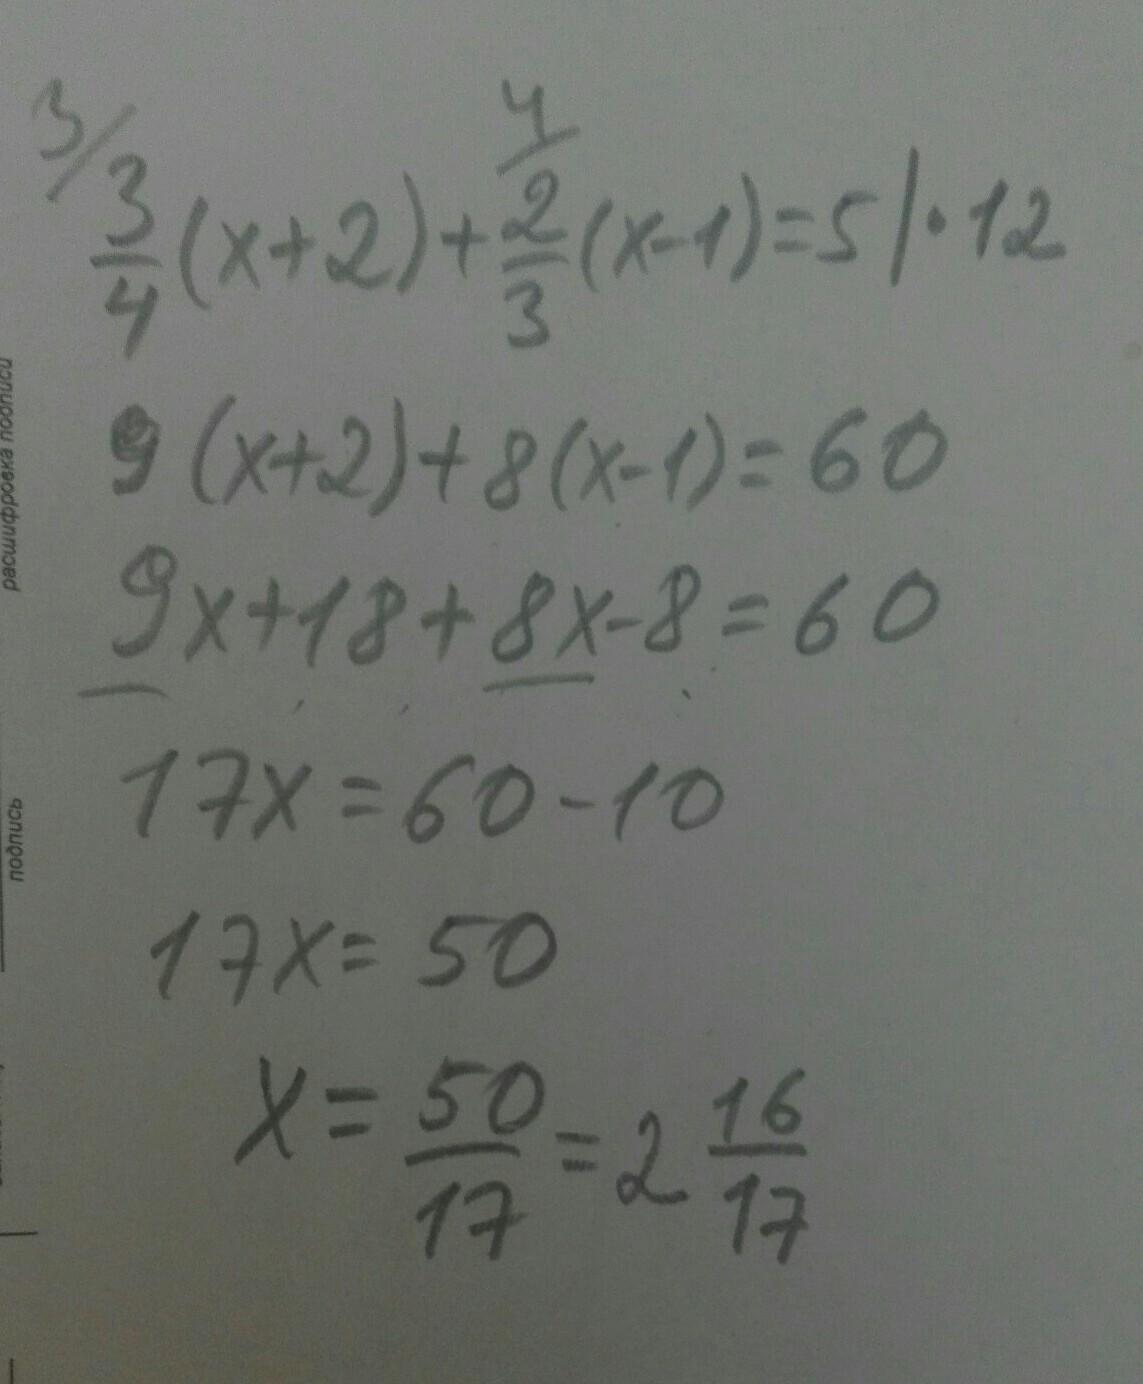 3/ 3/4 (x+2) + 4/ 2/3 (x-1) = 5 | · 12
9 (x+2) + 8 (x-1) = 60
9x + 18 + 8x - 8 = 60
17x = 60 - 10
17x = 50
x = 50/17 = 2 16/17
расшифровка подписи
подпись